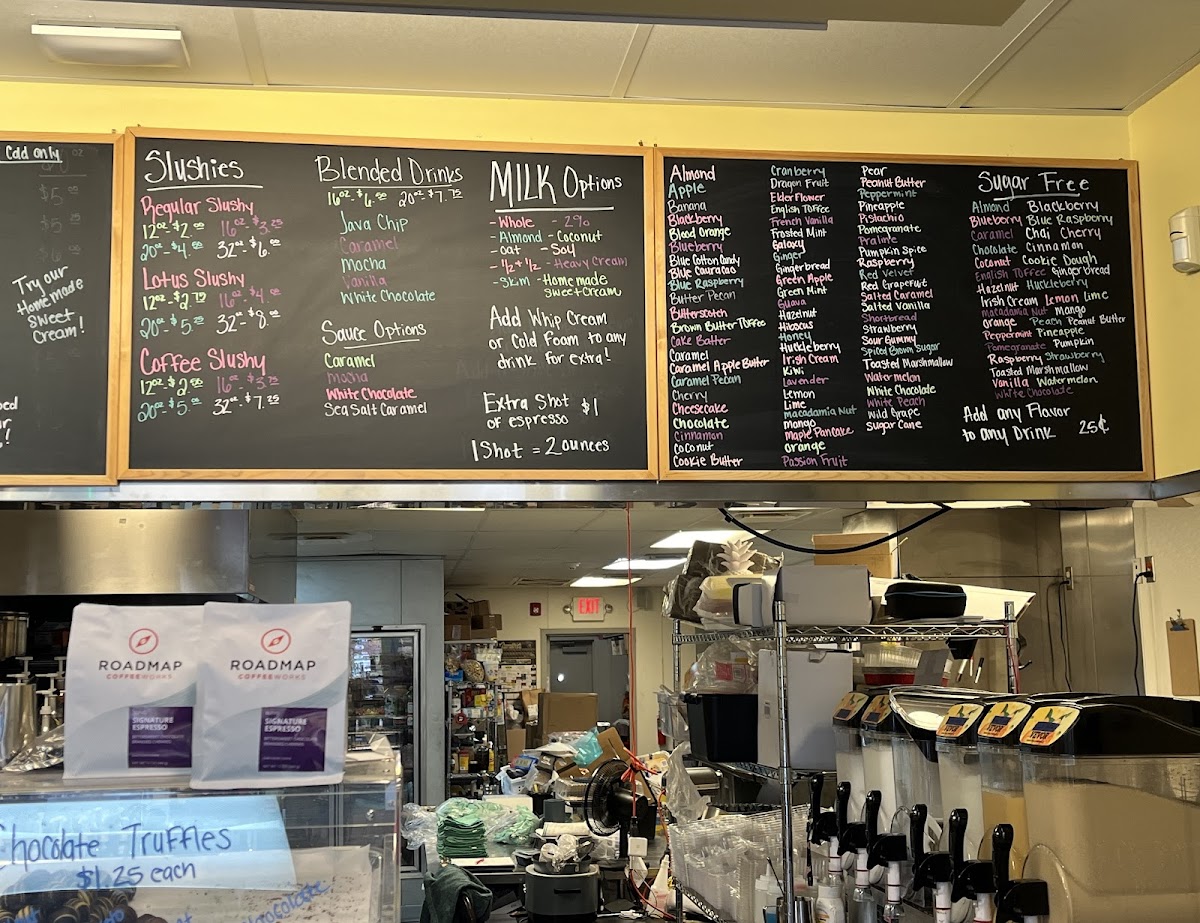 Cold only
$5
$5
$6
Try our
Homemade
Sweet
Cream!
Slushies
Regular Slushy
12oz - $2.00 16oz - $3.25
20oz - $4.00 32oz - $6.00
Lotus Slushy
12oz - $2.75 16oz - $4.00
20oz - $5.25 32oz - $8.00
Coffee Slushy
12oz - $2.00 16oz - $3.75
20oz - $5.00 32oz - $7.25
Blended Drinks
16oz - $6.00 20oz - $7.75
Java Chip
Caramel
Mocha
Vanilla
White Chocolate
Sauce Options
Caramel
Mocha
White Chocolate
Sea Salt Caramel
MILK Options
- Whole - 2%
- Almond - Coconut
- Oat - Soy
- 1/2 + 1/2 - Heavy Cream
- Skim - Homemade
Sweet Cream
Add Whip Cream
or Cold Foam to any
drink for extra!
Extra Shot
of espresso $1
1 Shot = 2 ounces
Almond
Apple
Banana
Blackberry
Blood Orange
Blueberry
Blue Cotton Candy
Blue Curacao
Blue Raspberry
Butter Pecan
Butterscotch
Brown Butter Toffee
Cake Batter
Caramel
Caramel Apple Butter
Caramel Pecan
Cherry
Cheesecake
Chocolate
Cinnamon
Coconut
Cookie Butter
Cranberry
Dragon Fruit
Elderflower
English Toffee
French Vanilla
Frosted Mint
Galaxy
Ginger
Gingerbread
Green Apple
Green Mint
Guava
Hazelnut
Hibiscus
Honey
Huckleberry
Irish Cream
Kiwi
Lavender
Lemon
Lime
Macadamia Nut
Mango
Maple Pancake
Orange
Passion Fruit
Pear
Peanut Butter
Peppermint
Pineapple
Pistachio
Pomegranate
Praline
Pumpkin Spice
Raspberry
Red Velvet
Red Grapefruit
Salted Caramel
Salted Vanilla
Shortbread
Strawberry
Sour Gummy
Spiced Brown Sugar
Toasted Marshmallow
Watermelon
White Chocolate
White Peach
Wild Grape
Sugar Cane
Sugar Free
Almond Blackberry
Blueberry Blue Raspberry
Caramel Chai Cherry
Chocolate Cinnamon
Coconut Cookie Dough
English Toffee Gingerbread
Hazelnut Huckleberry
Irish Cream Lemon Lime
Macadamia Nut Mango
Orange Peach Peanut Butter
Peppermint Pineapple
Pomegranate Pumpkin
Raspberry Strawberry
Toasted Marshmallow
Vanilla Watermelon
White Chocolate
Add any Flavor
to any Drink 25¢
EXIT
ROADMAP
COFFEEWORKS
SIGNATURE
ESPRESSO
ROADMAP
COFFEEWORKS
SIGNATURE
ESPRESSO
VEVOR
VEVOR
VEVOR
Chocolate Truffles
$1.25 each
chocolate